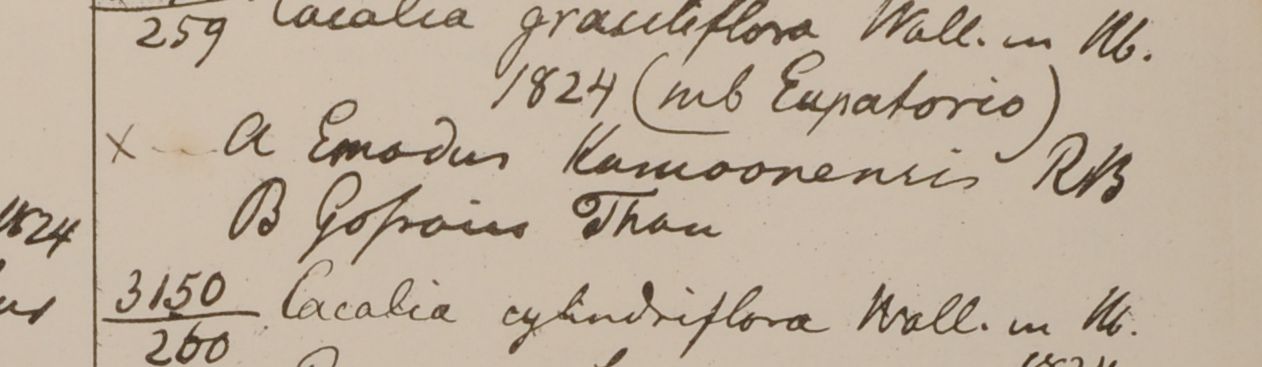 259 Cacalia graciliflora Wall. in Hb.
1824 (sub Eupatorio)
x A Emodus Kamoonensis RB
B Gosain Than
1824
3150 Cacalia cylindriflora Wall. in Hb.
260
1824